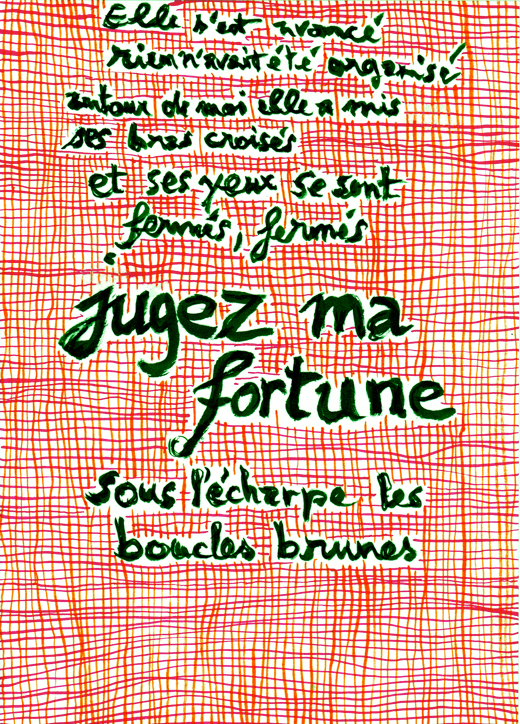 Elle s'est avancé
rien n'avait été organisé
autour de moi elle a mis
ses bras croisés
et ses yeux se sont
fermés, fermés
jugez ma
fortune
sous l'écharpe les
boucles brunes